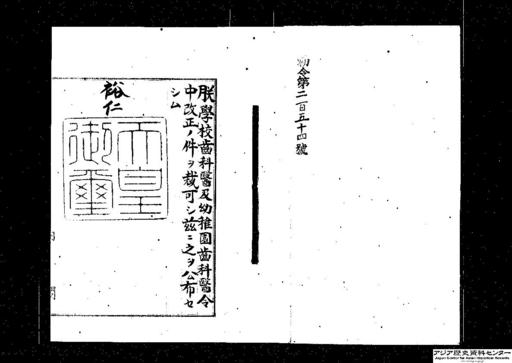 勅令第二百五十四號
朕學校齒科醫及幼稚園齒科醫令
中改正ノ件ヲ裁可シ茲ニ之ヲ公布セ
シム
裕仁
天皇
御璽
アジア歴史資料センター
Japan Center for Asian Historical Records